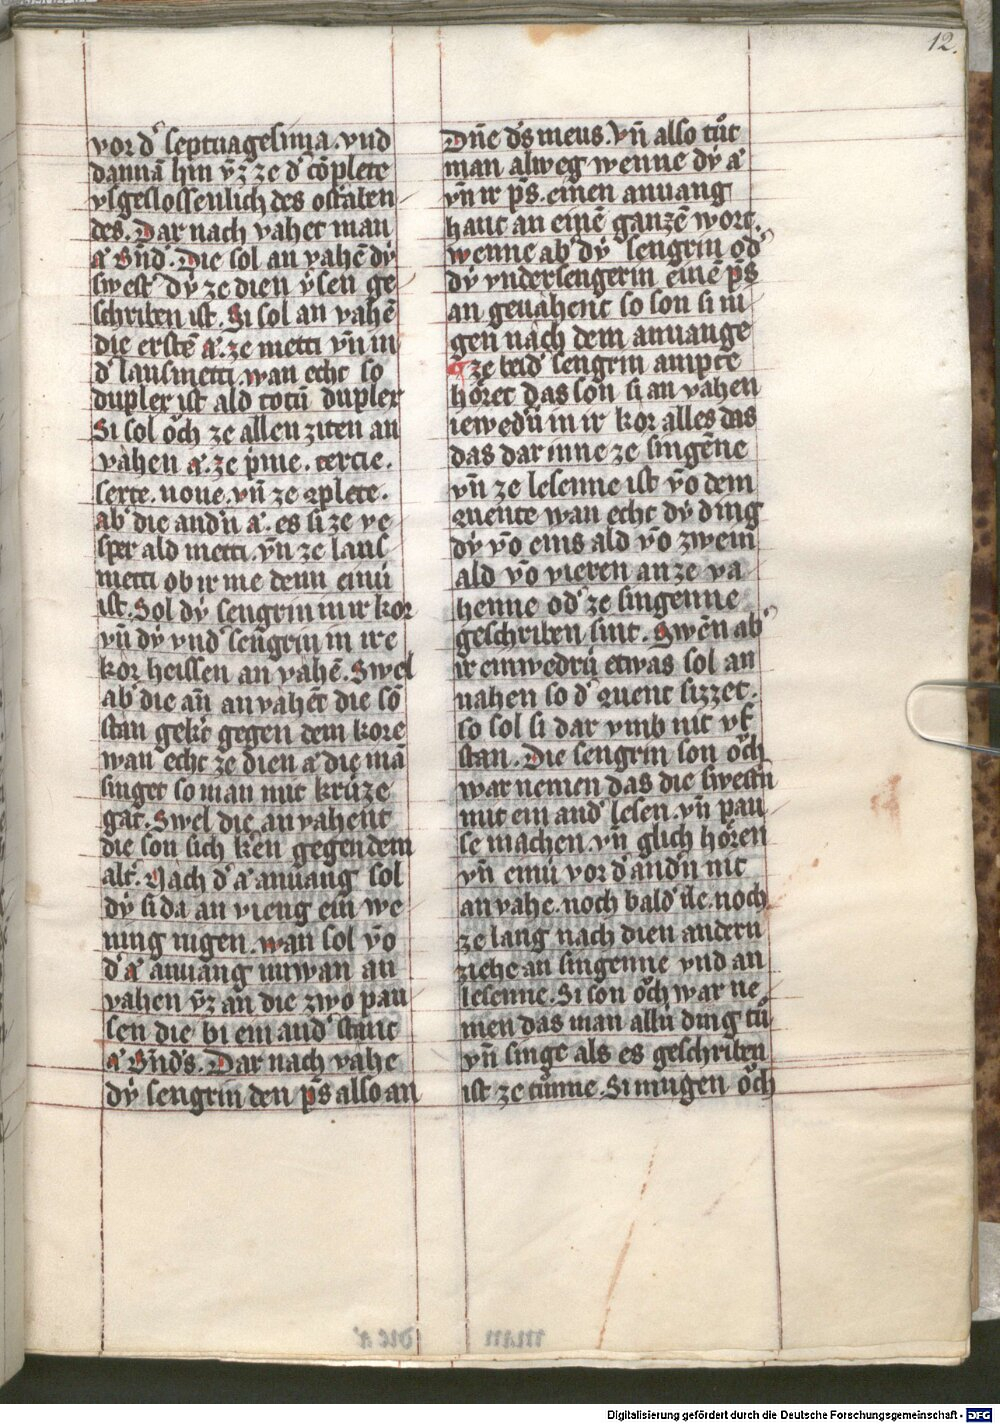 12.
vor dˀ septuagesima. vnd
dannā hin vͮz ze dˀ cōplete
vsgeslossenlich des ostraben
des. Dar nach vahet man
aˀ Bn̄dˀ. Die sol an vahē dy
swestˀ dy ze dien ysen ge
schriben ist. Si sol an vahē
die erstē aˀ. ze metti vn̄ in
dˀ lausmetti. wan echt so
duplex ist ald totū duplex
Si sol oͮch ze allen ziten an
vahen aˀ. ze pͥme. tercie.
sexte. none. vn̄ ze ꝯplete.
abˀ die andˀn aˀ. es si ze ve
sper ald metti. vn̄ ze laus
metti ob ir me denn einü
ist. Sol dy sengrin in ir kor
vn̄ dy vndˀ sengrin in ire
kor heissen an vahē. Swel
abˀ die an̄ an vahēt die sō
stan gekˀt gegen dem kore
wan echt ze dien aˀ die mā
singet so man mit krüze
gat. Swel die an vahent
die son sich kˀen gegen dem
altˀ. Nach dˀ aˀ anuang sol
dy si da an vieng ein we
ning nigen. wan sol vō
dˀ aˀ anuang nuwan an
vahen vͮz an die zwo pau
sen die bi ein andˀ stant
aˀ Bn̄dˀs. Dar nach vahe
dy sengrin den pˢs also an
Dn̄e dˀs meus. Vn̄ also tuͦt
man alweg wenne dy aˀ
vn̄ ir pˢs. einen anuang
hant an einē ganzē wort.
wenne abˀ dy sengrin odˀ
dy vndersengerin einē pˢs
an geuahent so son si ni
gen nach dem anuange
¶ ze beidˀ sengrin ampte
hoͤret das son si an vahen
iewedˀü in ir kor alles das
das dar inne ze singēne
vn̄ ze lesenne ist vō dem
quente wan echt dy ding
dy vō eins ald vō zwein
ald vō vieren an ze va
henne odˀ ze singenne
geschriben sint. Swēn abˀ
ir einwedrü etwas sol an
uahen so dˀ quent sizzet.
so sol si dar vmb nit vf
stan. Die sengrin son oͮch
war nemen das die swestˀn
mit ein andˀ lesen. vn̄ pau
se machen. vn̄ glich hoͤren
vn̄ einü vor dˀ andˀn nit
an vahe. noch bald ile. noch
ze lang nach dien andern
ziehe an singenne vnd an
lesenne. Si son oͮch war ne
men das man allü ding tuͦ
vn̄ singe als es geschriben
ist ze tuͦnne. Si mugen oͮch
Digitalisierung gefördert durch die Deutsche Forschungsgemeinschaft - DFG